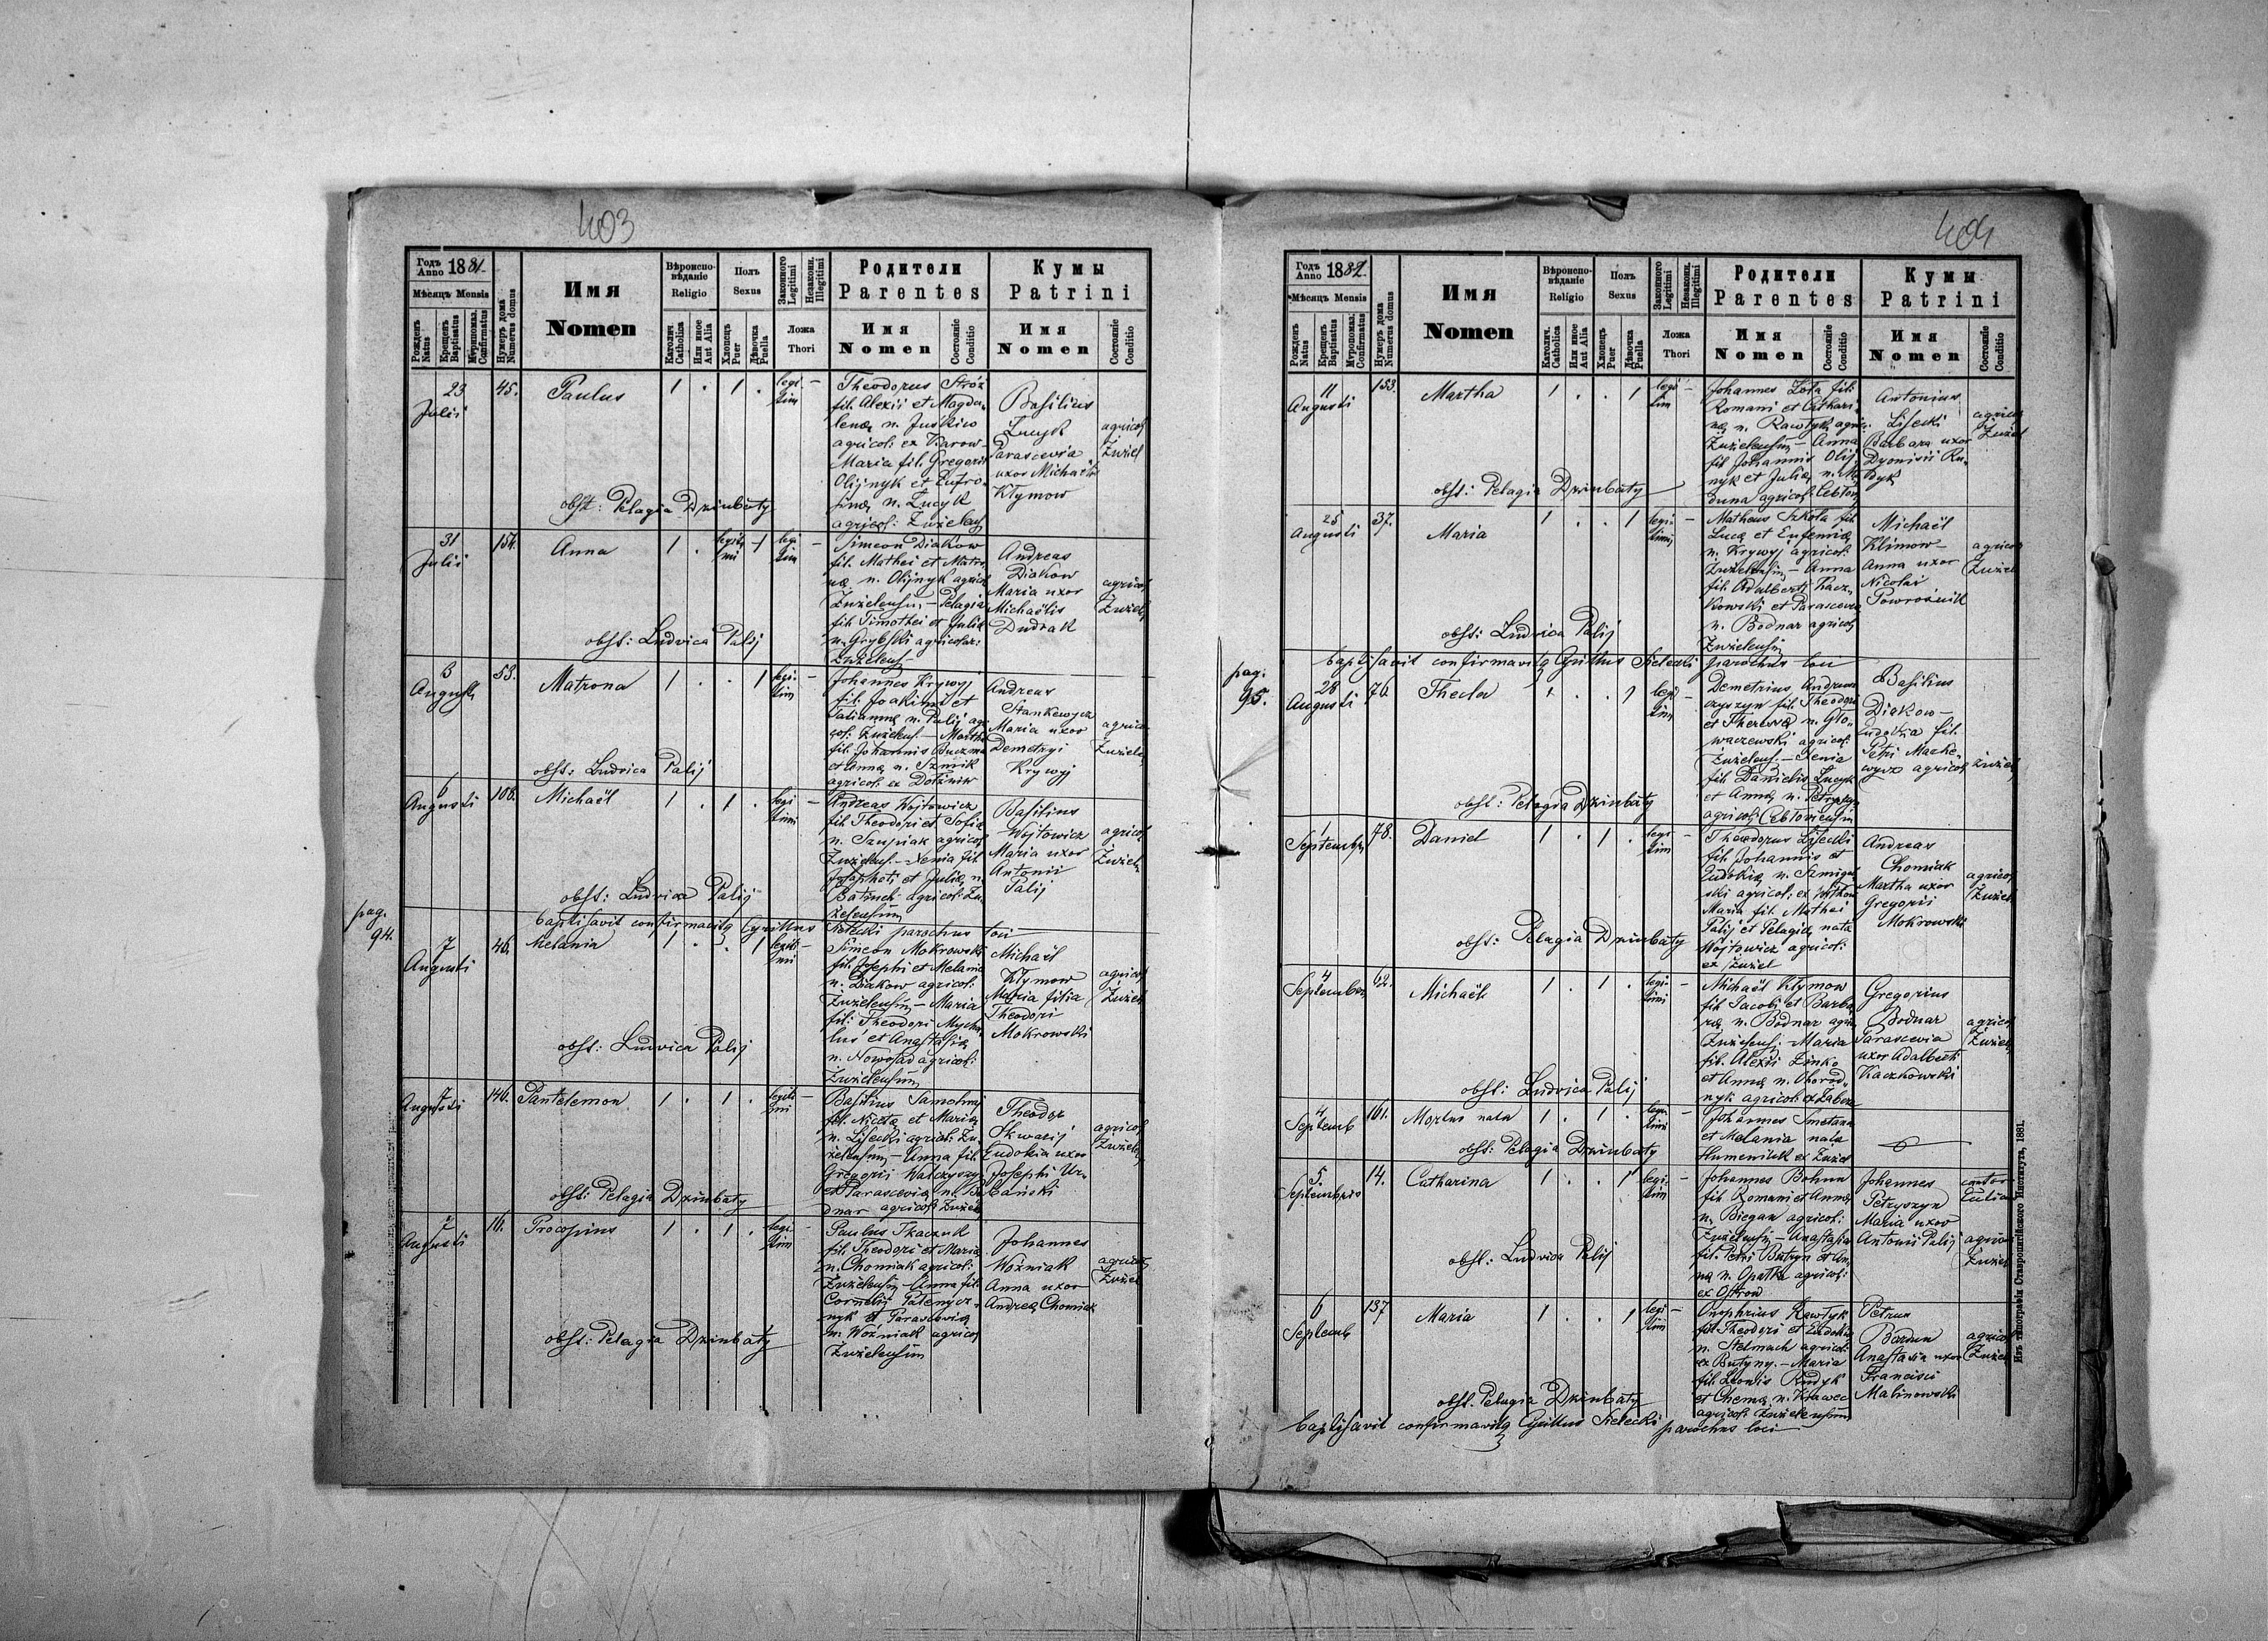 403
Годъ Anno 1881.
Мѣсяцъ Mensis
Рожденъ Natus
Крещенъ Baptisatus
Мѵропомаз. Confirmatus
Нумеръ дома Numerus domus
Имя
Nomen
Вѣроиспо-
вѣданіе
Religio
Католич. Catholica
Или иное Aut Alia
Полъ
Sexus
Хлопецъ Puer
Дѣвочка Puella
Законного Legitimi
Незаконн. Illegitimi
Ложа
Thori
Родители
Parentes
Имя
Nomen
Состояніе Conditio
Кумы
Patrini
Имя
Nomen
Состояніе Conditio
23
Julii
45.
Paulus
1 . 1 .
legi
tim
Theodorus Stróz
fil. Alexii et Magda-
lenę n. Juskiw
agricol: ex Barow-
Maria fil. Gregorii
Olijnyk et Eufro-
sinę n. Łucyk
agricol: Żużelens
Basilius
Łucyk
Parascevia
uxor Michaëlis
Kłymow
agricol
Żużel
obst: Pelagia Dzinbaty
31
Julii
154.
Anna
1 .
legiti
mi
1
legi
tim
Simeon Diakow
fil. Mathei et Matro-
nę n. Olijnyk agricol
Żużelensiu, - Pelagia
fil. Timothei et Julię
n. Grybski agricolar:
Żużelens
Andreas
Diakow
Maria uxor
Michaëlis
Dudrak
agricol
Żużel
obst: Ludvica Palij
6
Augusti
53.
Matrona
1 . . 1
legi-
tim
Johannes Krywyj
fil. Joakimi et
Tatiannę n. Palij agri
col: Żużelens - Martha
fil. Johannis Buczma
et Annę n. Szmik
agricol: ex Dołżniw
Andreas
Stankewycz
Maria uxor
Demetryi
Krywyj
agricol
Żużel
obst: Ludvica Palij
6
Augusti
108.
Michaël
1 . 1 .
legi
timi
Andreas Wojtowicz
fil. Theodori et Sofię
n. Szupiak agricol
Żużelens - Xenia fil.
Josaphati et Julię n.
agricol: Żu-
żelensium
Basilius
Wojtowicz
Maria uxor
Antonii
Palij
agricol
Żużel
obst: Ludvica Palij
pag.
94.
baptisavit confirmavitq Cyrillus Sielecki parochus loci
7
Augusti
46.
Melania
1 . . 1
legiti
mi
Simeon Mokrowski
fil. Josephi et Melanię
n. Diakow agricol:
Żużelensiu, - Maria
fil: Theodori
et Anastasię
n. Nowosad agricol:
Żużelensium
Michaël
Kłymow
Maria filia
Theodori
Mokrowski
agricol
Żużel
obst: Ludvica Palij
7
Augusti
146.
Pantelemon
1 . 1 .
legiti
mi
Basilius
fil. Nicetę et Marię
n. Lisecki agricol: Żu-
żelensium - Anna fil.
Gregorii Walczyszyn
et Parascevię n. Bo
dnar agricol: Żużel
Theodor
Skwarij
Eudokia uxor
Josephi Ur-
bański
agricol
Żużel
obst: Pelagia Dzinbaty
7
Augusti
16.
Procopius
1 . 1 .
legi
tim
Paulus Tkaczuk
fil. Theodori et Marię
n. Chomiak agricol:
Żużelensiu - Anna fil.
Cornelij
nyk et Parascevię
n. Woźniak agricol
Żużelensium
Johannes
Woźniak
Anna uxor
Andreę Chomiak
agricol
Żużel
obst: Pelagia Dzinbaty
404
Годъ Anno 1882.
Мѣсяцъ Mensis
Рожденъ Natus
Крещенъ Baptisatus
Мѵропомаз. Confirmatus
Нумеръ дома Numerus domus
Имя
Nomen
Вѣроиспо-
вѣданіе
Religio
Католич. Catholica
Или иное Aut Alia
Полъ
Sexus
Хлопецъ Puer
Дѣвочка Puella
Законного Legitimi
Незаконн. Illegitimi
Ложа
Thori
Родители
Parentes
Имя
Nomen
Состояніе Conditio
Кумы
Patrini
Имя
Nomen
Состояніе Conditio
11
Augusti
153.
Martha
1 . . 1
legi
tim
Johannes Łota fil:
Romani et Cathari-
nę n. Rawłyk agri:
Żużelensiu - Anna
fil Johannis Olij-
nyk et Julię n.
duna agricol:
Antonius
Lisecki
Barbara uxor
Dyonisii Ru-
dyk
agricol
Żużel
obst: Pelagia Dzinbaty
25
Augusti
37.
Maria
1 . . 1
legi-
timi
Matheus Szkoła fil.
Lucę et Eufemię
n. Krywyj agricol:
Żużelensiu - Anna
fil. Adalberti Kacz-
kowski et Parascevię
n. Bodnar agricol
Żużelensiu
Michaël
Klimow-
Anna uxor
Nicolai
Powroźnik
agricol
Żużel
obst: Ludvica Palij
baptisavit confirmavitq Cyrillus Sielecki parochus loci
pag.
95.
28
Augusti
76.
Thecla
1 . . 1
legi
tim
Demetrius Andrusz
czyszyn fil. Theodori
et Theresę n. Gło-
waczewski agricol:
Żużelens. - Xenia
fil. Danielis Łucyk
et Annę n. Petryszyn
agricol:
Basilius
Diakow -
Eudokia fil.
Petri Macke-
wycz agricol
Żużel
obst: Pelagia Dzinbaty
1
Septemb.
78.
Daniel
1 . 1 .
legi
tim
Theodorus Lisecki
fil. Johannis et
Eudokię n. Smigel
ski agricol: ex
Maria fil. Mathei
Palij et Pelagię nata
Wojtowicz agricol:
ex Żużel
Andreas
Chomiak
Martha uxor
Gregorii
Mokrowski
agricol
Żużel
obst: Pelagia Dzinbaty
4
Septembr
62.
Michaël
1 . 1 .
legi-
timi
Michaël Kłymow
fil. Jacobi et Barba-
rę n. Bodnar agri:
Żużelens: - Maria
fil. Alexii Zinko
et Annę n. Ohorod-
nyk agricol:
Gregorius
Bodnar
Parascevia
uxor Adalberti
Kaczkowski
agricol
Żużel
obst: Ludvica Palij
4
Septemb
161.
Mortus nata
1 . 1 .
legi
timi
Johannes Smetana
et Melania nata
Humeniuk ex Żużel
obst: Pelagia Dzinbaty
5.
Septembris
14.
Catharina
1 . . 1
legi-
tim
Johannes Bohun
fil. Romani et Annę
n. Biegan agricol:
Żużelensiu, - Anastasia
fil. Petri Butryn et An-
nę n. Opałka agricol:
ex Ostrow
Johannes
Petryszyn
Maria uxor
Antonii Palij
cantor
agricol
Żużel
obst: Ludvica Palij
6
Septemb
137
Maria
1 . . 1
legi
tim
Onuphrius Rawłyk
fil. Theodori et Eudokię
n. Stelmach agricol:
ex Butyny. - Maria
fil. Leonis Rudyk
et Chemę n. Krawec
agricol: Żużelensium
Petrus
Bardun
Anastasia uxor
Francisci
Malinowski
agricol
Żużel
obst. Pelagia Dzinbaty
baptisavit confirmavitq Cyrillus Sielecki parochus loci
Изъ типографіи Ставропигійского Института, 1881.